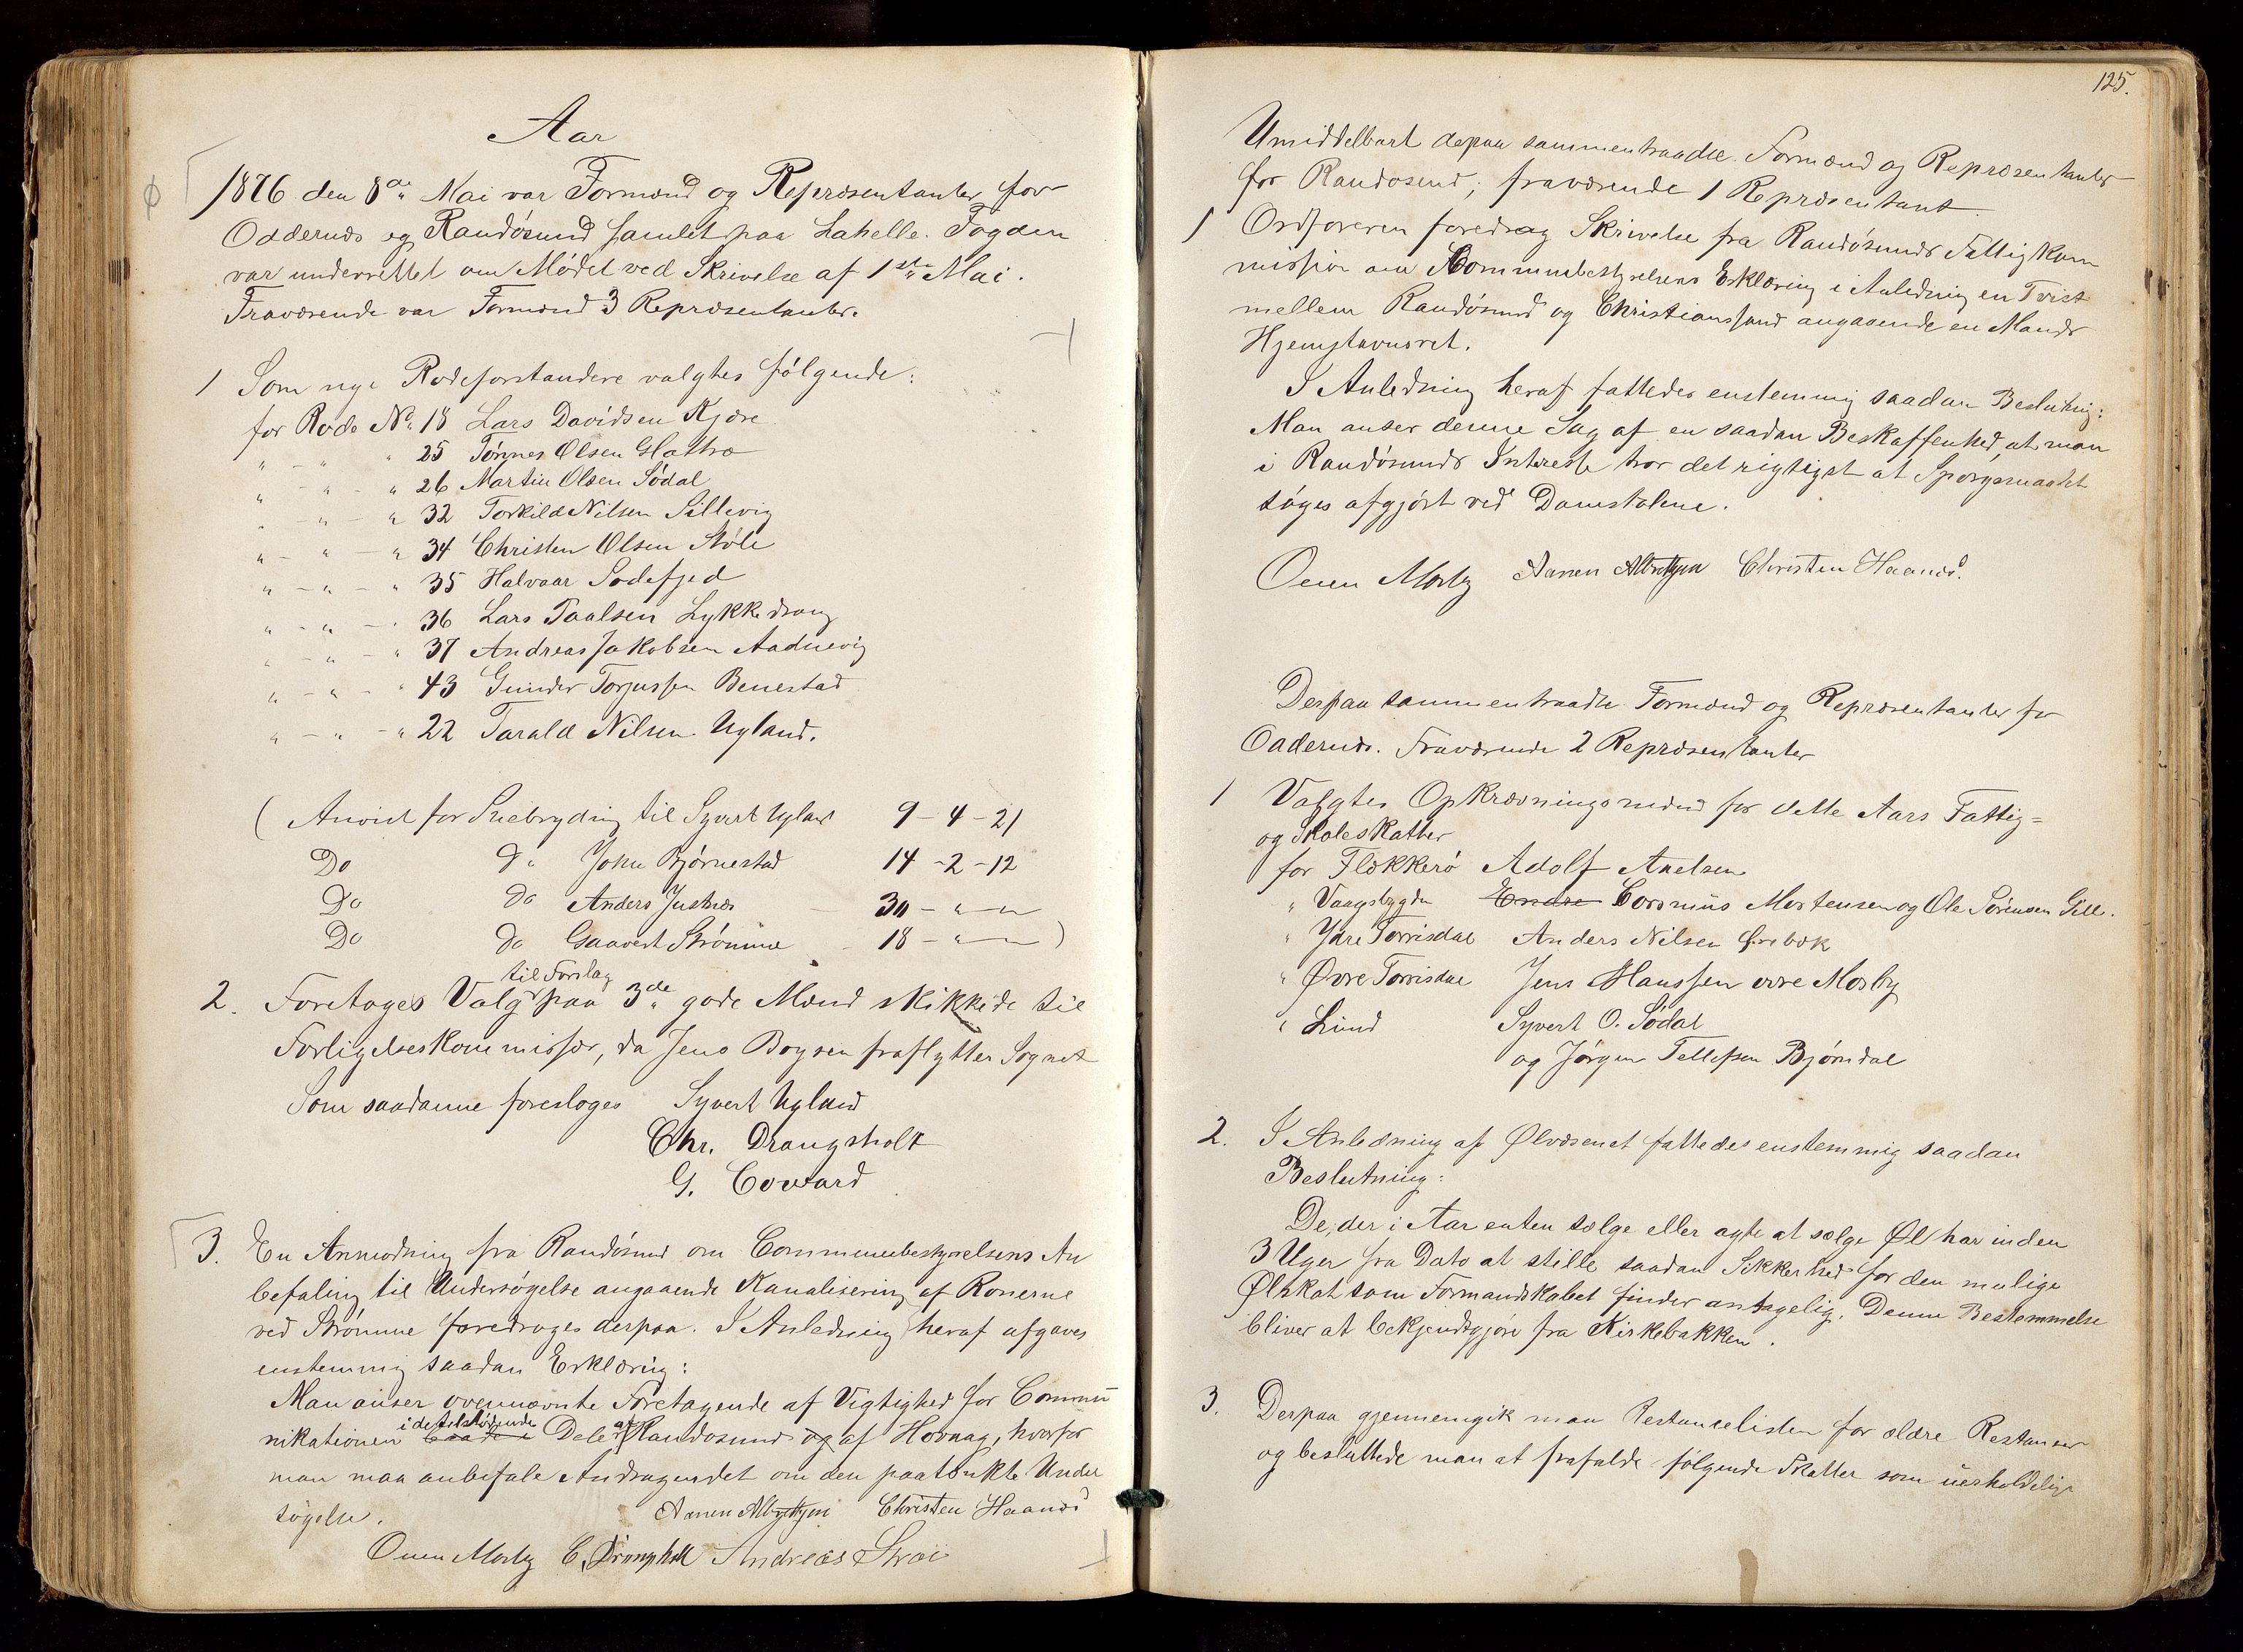 Aar
1876 den 8de Mai var Formænd og Repræsentanter for
Oddernes og Randøsund samlet paa Lahelle. Fogden
var underrettet om Mødet ved Skrivelse af 1ste Mai.
Fraværende var Formænd 3 Repræsentanter.
1 Som nye Rodeforstandere valgtes følgende:
for Rode No 18 Lars Davidsen Kjære
" - " " 25 Tønnes Olsen Glattre
" - " - " 26 Martin Olsen Sødal
" - " - " 32 Torkild Nilsen Sillevig
" - " - " 34 Christen Olsen Støle
" - " - " 35 Halvaar Sodefjed
" - " - " 36 Lars Paalsen Lykkedrang
" - " - " 37 Andreas Jakobsen Aadnevig
" - " - " 43 Gunder Torjussen Benestad
" - " - " 22 Tarald Nilsen Ugland.
( Anvist for Snebryding til Syvert Ugland 9 - 4 - 21
Do Do John Bjørnestad 14 - 2 - 12
Do Do Anders Justnes 30 - " - "
Do Do Gaavert Strømme 18 - " - " )
til Forslag
2. Foretoges Valg paa 3de gode Mænd skikkede til
Forligelseskommissær, da Jens Boysen fraflytter Sognet
Som saadanne foresloges Syvert Ugland
Chr. Drangsholt
G. Coward
3. En Anmodning fra Randøsund om Communebestyrelsens An
befaling til Undersøgelse angaaende Kanalisering af Ronerne
ved Strømme foredroges derpaa. I Anledning heraf afgaves
enstemmig saadan Erklæring:
Man anser ovennævnte Foretagende af Vigtighed for Commu
i de tilstødende af
nikationen baade i Dele Randosund og af Hovaag, hvorfor
man maa anbefale Andragendet om den paatænkte Under
søgelse. Aanen Albretsen Christen Haanes
Ouen Mosby C. Drangsholt Andreas Strai
125.
Umiddelbart depaa sammentraadte Formænd og Repræsentanter
for Randosund; fraværende 1 Repræsentant.
1 Ordføreren foredrog Skrivelse fra Randøsunds Fattigkom
mission om Kommunebestyrelsens Erklæring i Anledning en Tvist
mellem Randøsund og Christianssand angaaende en Mands
Hjemstavnsret.
I Anledning heraf fattedes enstemmig saadan Beslutning:
Man anser denne Sag af en saadan Beskaffenhed, at man
i Randøsunds Interesse tror det rigtigst at Spørgsmaalet
søges afgjørt ved Domstolene.
Ouen Mosby Aanen Albretsen Christen Haanes.
Derpaa sammentraadte Formænd og Repræsentanter for
Oddernes. Fraværende 2 Repræsentanter
1 Valgtes Opkrævningsmænd for dette Aars Fattig=
og Skoleskatter
for Flekkerø Adolf Axelsen
" Vaagsbygden Endre Corsmus Mortensen og Ole Sørensen Gill.
" Ydre Torrisdal Anders Nilsen Ørebæk
" Øvre Torrisdal Jens Hanssen øvre Mosby
" Lund Syvert O. Sødal
og Jørgen Tellefsen Bjørndal
2. I Anledning af Ølvæsenet fattedes enstemmig saadan
Beslutning:
De, der i Aar enten sælge eller agte at sælge Øl har inden
3 Uger fra Dato at stille saadan Sikkerhed for den mulige
Ølskat som Formandskabet finder antagelig. Denne Bestemmelse
bliver at bekjendtgjøre fra Kirkebakken.
3. Derpaa gjennemgik man Restancelisten for ældre Restancer
og besluttede man at frafalde følgende Skatter som uerholdelige